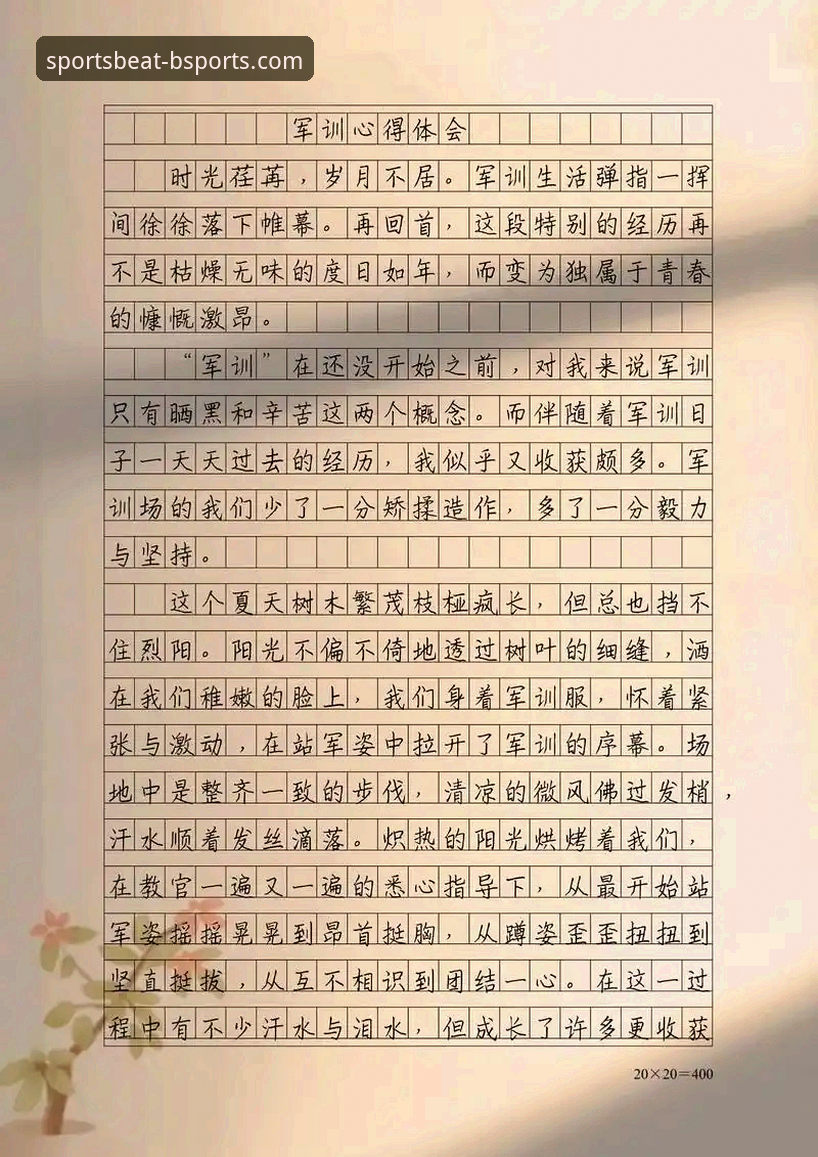 sportsbeat-bsports.com
军训心得体会
时光荏苒，岁月不居。军训生活弹指一挥
间徐徐落下帷幕。再回首，这段特别的经历再
不是枯燥无味的度日如年，而变为独属于青春
的慷慨激昂。
“军训”在还没开始之前，对我来说军训
只有晒黑和辛苦这两个概念。而伴随着军训日
子一天天过去的经历，我似乎又收获颇多。军
训场的我们少了一分矫揉造作，多了一分毅力
与坚持。
这个夏天树木繁茂枝桠疯长，但总也挡不
住烈阳。阳光不偏不倚地透过树叶的细缝，洒
在我们稚嫩的脸上，我们身着军训服，怀着紧
张与激动，在站军姿中拉开了军训的序幕。场
地中是整齐一致的步伐，清凉的微风佛过发梢，
汗水顺着发丝滴落。炽热的阳光烘烤着我们，
在教官一遍又一遍的悉心指导下，从最开始站
军姿摇摇晃晃到昂首挺胸，从蹲姿歪歪扭扭到
坚直挺拔，从互不相识到团结一心。在这一过
程中有不少汗水与泪水，但成长了许多更收获
20×20=400